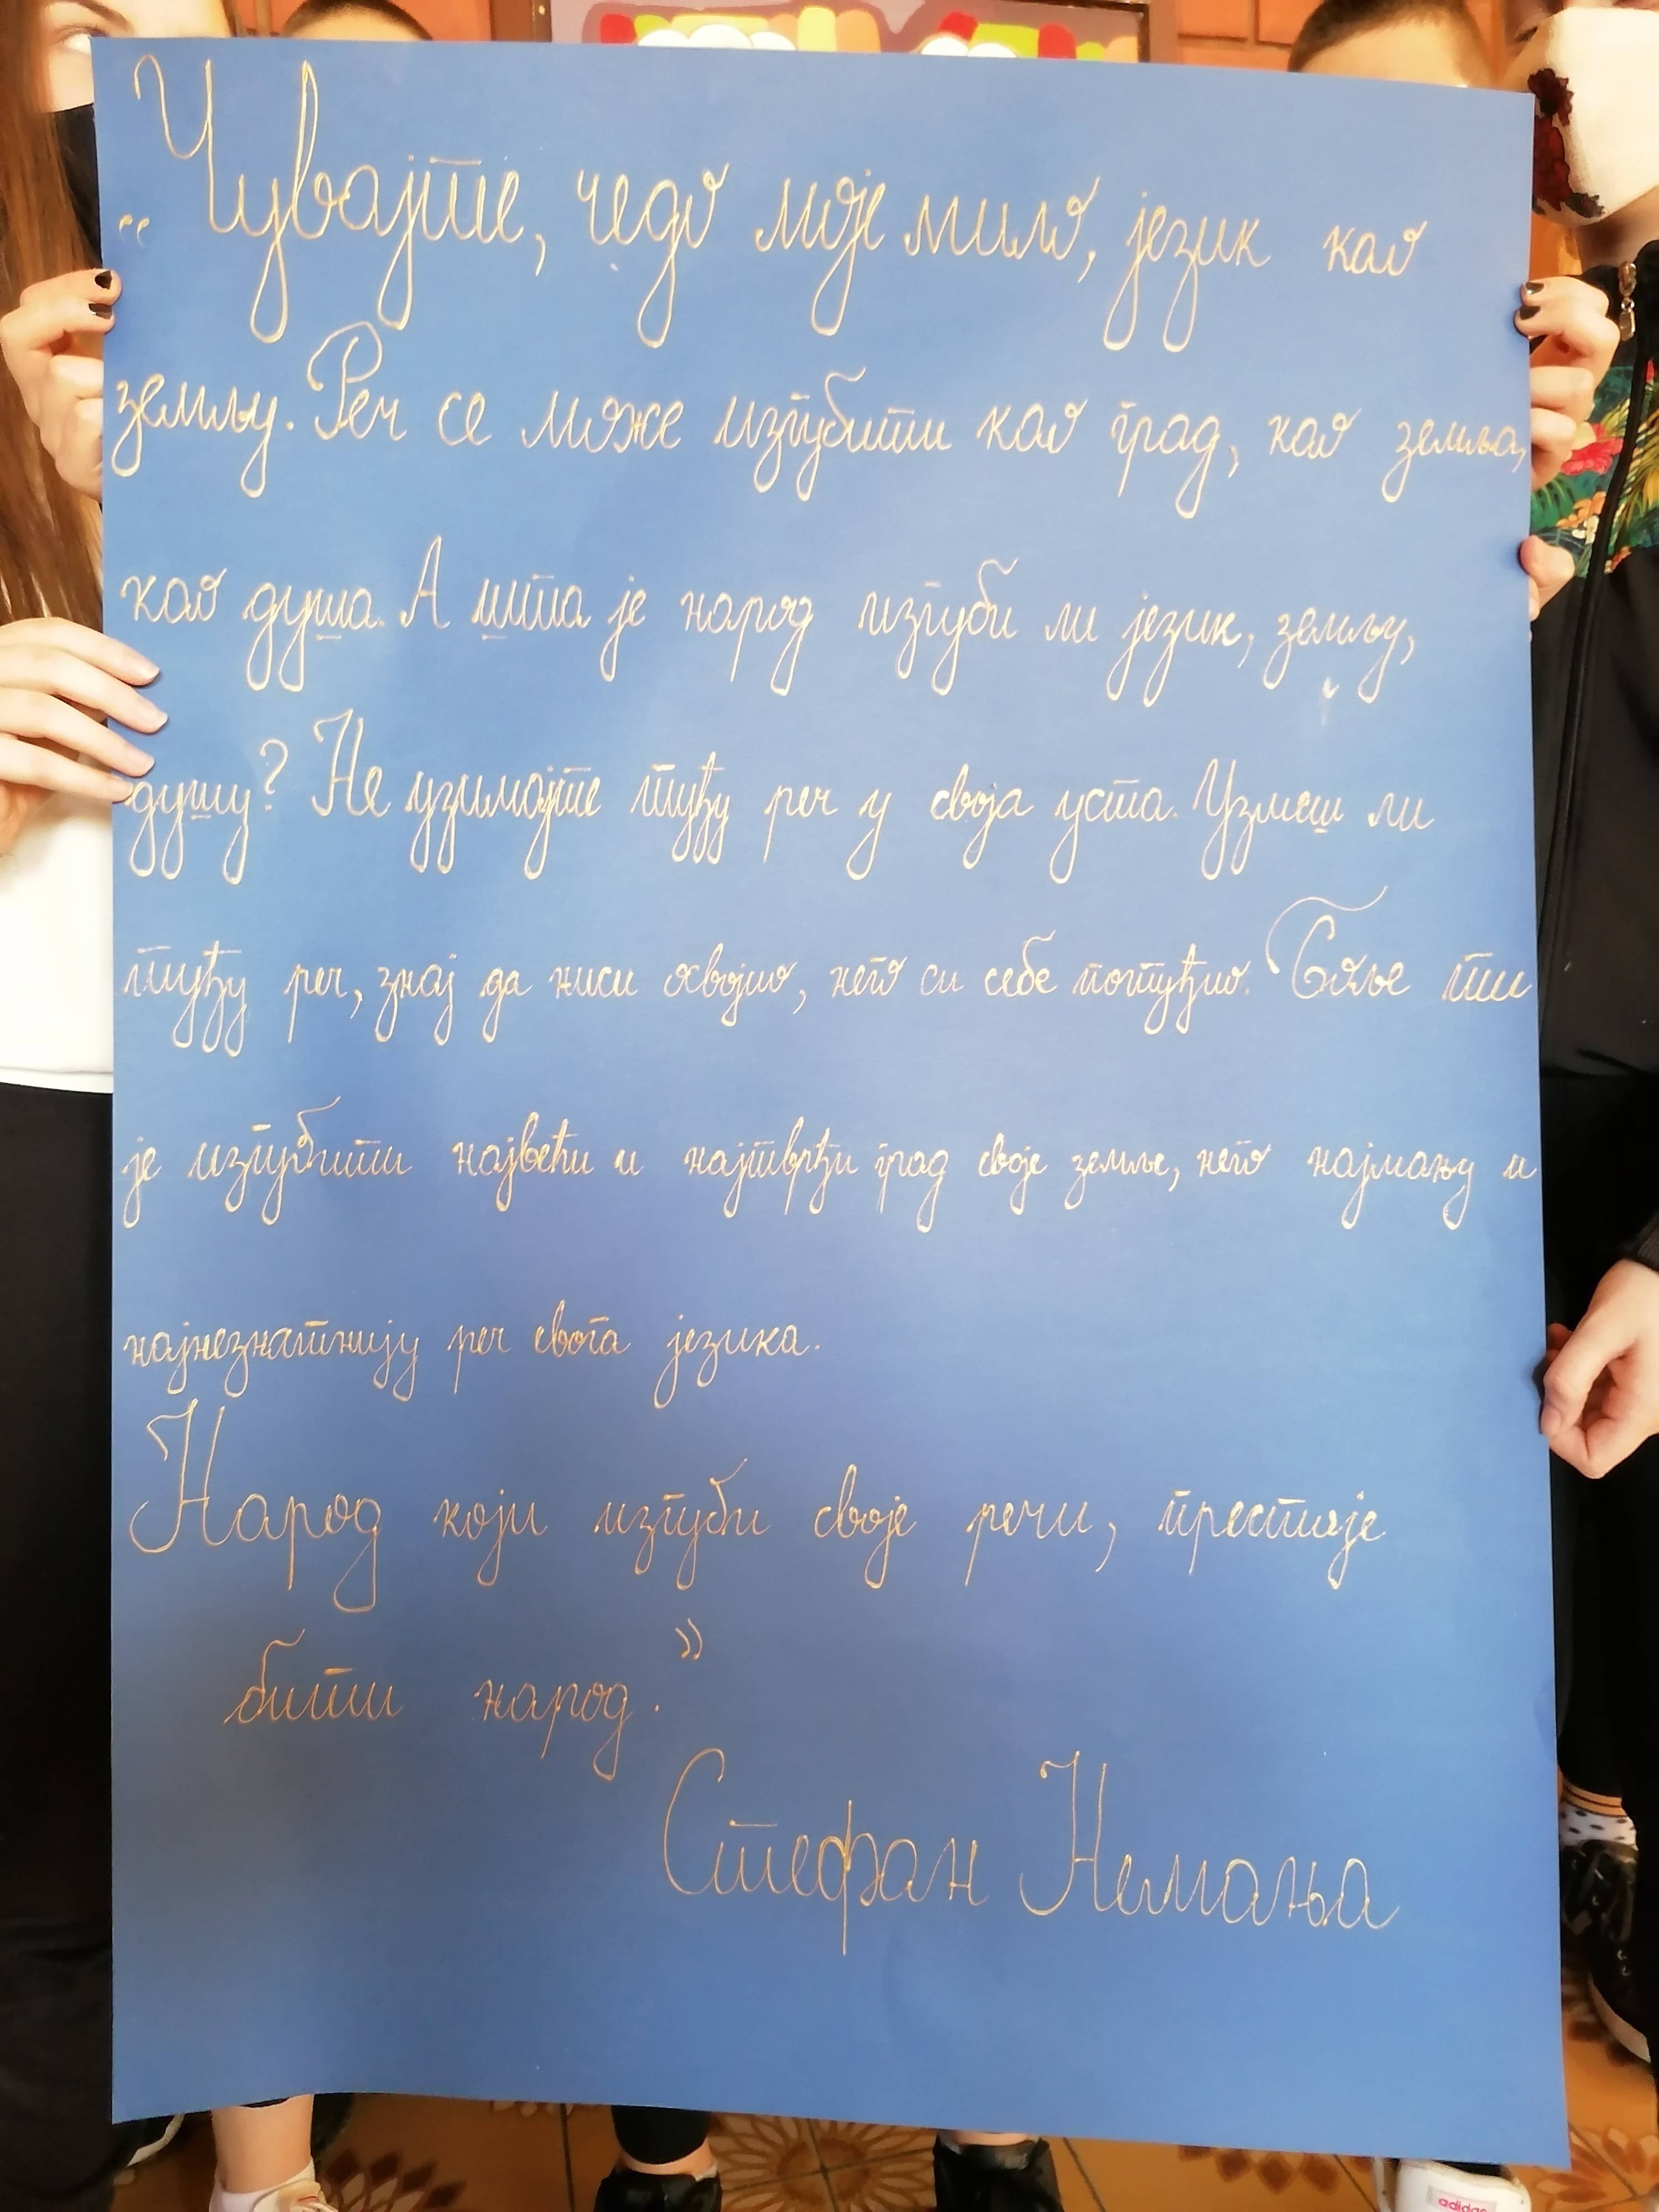 „Чувајте, чедо моје мило, језик као
земљу. Реч се може изгубити као град, као земља,
као душа. А шта је народ изгуби ли језик, земљу,
душу? Не узимајте туђу реч у своја уста. Узмеш ли
туђу реч, знај да ниси освојио, него си себе потуђио. Боље ти
је изгубити највећи и најтврђи град своје земље, него најмању и
најнезнатнију реч свога језика.
Народ који изгуби своје речи, престаје
бити народ.”
Стефан Немања
adidas